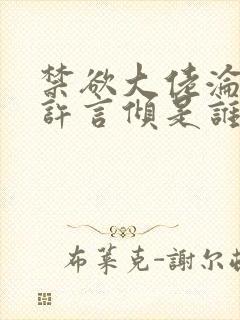 禁欲大佬淪
許言傾是誰
布萊克-謝尔